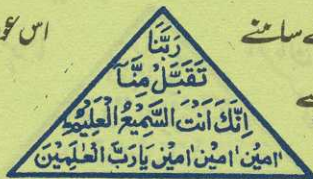 سامنے
اس
رَبَّنَا
تَقَبَّلْ مِنَّا
اِنَّكَ اَنْتَ السَّمِيْعُ الْعَلِيْمُ
اٰمِيْن اٰمِيْن اٰمِيْن يَارَبَّ الْعٰلَمِيْنَ